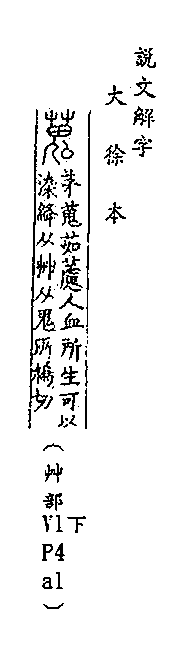 説文解字
大徐本
蒐
茅蒐茹藘人血所生可以
染絳从艸从鬼所鳩切
(艸部
V1下
P4
a1)